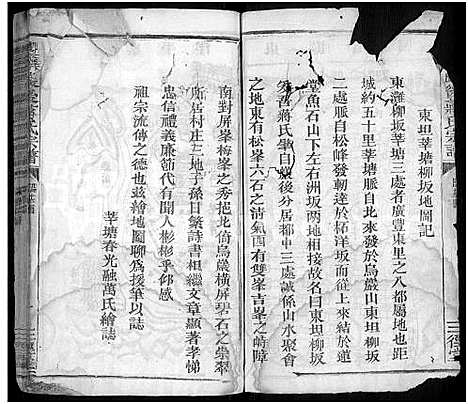 東坦莘塘柳坂地圖記
東灘柳坂莘塘三處者廣豐東里之八都屬地也距
城約五十里莘塘脈自北來發於烏巖山東坦柳坂
二處脈自松峰發軔達於柘洋坂而上來結於蓮
堂魚石山下左右洲坂兩地相接故名曰東坦柳坂
矣吾蔣氏肇自始後分居都中三處誠係山水聚會
之地東有松峯六石之清氣西有雙峯吉峯之崎障
南對屏峯梅峯之秀挹北倚烏巖橫屏碧石之崇翠
頗居村庄三地子孫日繁詩書相繼文章顯著孝悌
忠信禮義廉節代有聞人彬彬乎仰感
祖宗流傳之德也並繪地圖聊爲援筆以誌
莘塘春光融萬氏繪誌